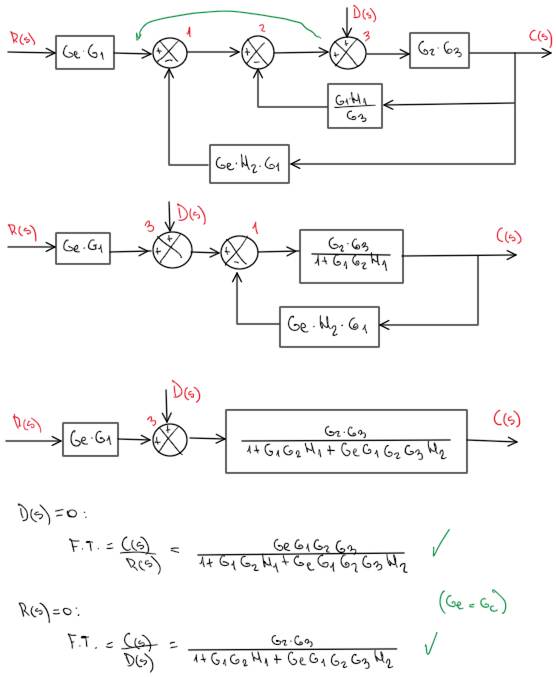 D(s)
R(s) Gc·G1 + − 1 + − 2 + + 3 G2·G3 C(s)
G1H1/G3
Gc·H2·G1
D(s)
R(s) Gc·G1 3 + + 1 + − G2·G3/1+G1G2H1 C(s)
Gc·H2·G1
D(s)
R(s) Gc·G1 3 + + G2·G3/1+G1G2H1+GcG1G2G3H2 C(s)
D(s)=0:
F.T. = C(s)/R(s) = GcG1G2G3/1+G1G2H1+GcG1G2G3H2 ✓
(Ge = Gc)
R(s)=0:
F.T. = C(s)/D(s) = G2·G3/1+G1G2H1+GcG1G2G3H2 ✓